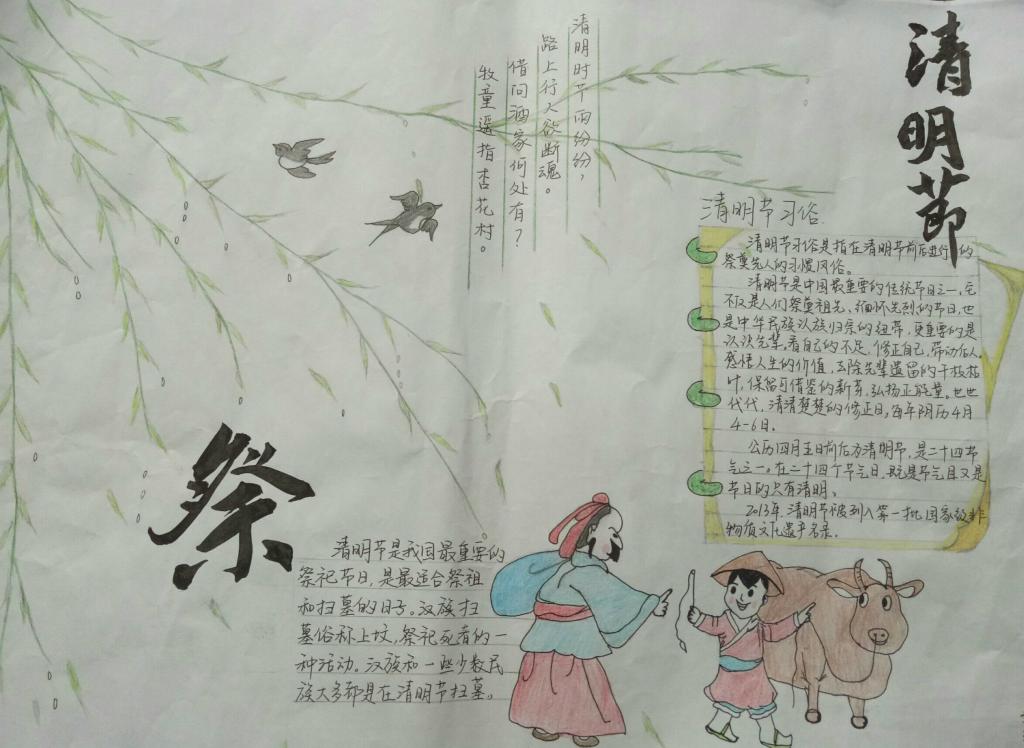 清明节
清明时节雨纷纷，
路上行人欲断魂。
借问酒家何处有？
牧童遥指杏花村。
清明节习俗
清明节习俗是指在清明节前后进行的
祭奠先人的习惯风俗。
清明节是中国最重要的传统节日之一。它
不仅是人们祭奠祖先、缅怀先烈的节日，也
是中华民族认族归宗的纽带，更重要的是
以决先辈，看自己的不足，修正自己，带动后人
感悟人生的价值，去除先辈遗留的干枝枯
叶，保留可借鉴的新芽，弘扬正能量。世世
代代，清清楚楚的修正日，每年阴历4月
4-6日。
公历四月五日前后为清明节，是二十四节
气之一。在二十四个节气日，既是节气且又是
节日的只有清明。
2013年，清明节被列入第一批国家级非
物质文化遗产名录。
祭
清明节是我国最重要的
祭祀节日，是最适合祭祖
和扫墓的日子。汉族扫
墓俗称上坟，祭祀死者的一
种活动。汉族和一些少数民
族大多都是在清明节扫墓。